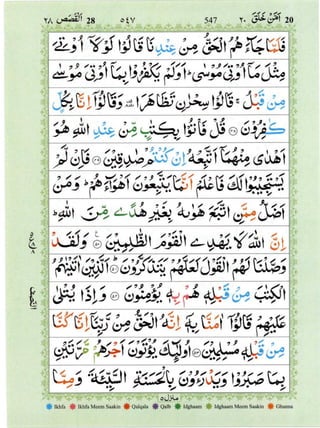 ٢٨ اَلْقَصَص 28 ٥٤٧ 547 ٢٠ اَمَّنْ خَلَقَ 20
فَلَمَّا جَآءَهُمُ الْحَقُّ مِنْ عِنْدِنَا قَالُوْا لَوْلَاۤ اُوْتِیَ
مِثْلَ مَاۤ اُوْتِیَ مُوْسٰیؕ اَوَلَمْ یَكْفُرُوْا بِمَاۤ اُوْتِیَ مُوْسٰی
مِنْ قَبْلُۚ قَالُوْا سِحْرٰنِ تَظَاهَرَاٙ وَ قَالُوْۤا اِنَّا بِكُلٍّ
كٰفِرُوْنَ ۴۸ قُلْ فَاْتُوْا بِكِتٰبٍ مِّنْ عِنْدِ اللّٰهِ هُوَ
اَهْدٰی مِنْهُمَاۤ اَتَّبِعْهُ اِنْ كُنْتُمْ صٰدِقِیْنَ ۴۹ فَاِنْ لَّمْ
یَسْتَجِیْبُوْا لَكَ فَاعْلَمْ اَنَّمَا یَتَّبِعُوْنَ اَهْوَآءَهُمْؕ وَ مَنْ
اَضَلُّ مِمَّنِ اتَّبَعَ هَوٰىهُ بِغَیْرِ هُدًی مِّنَ اللّٰهِؕ
اِنَّ اللّٰهَ لَا یَهْدِی الْقَوْمَ الظّٰلِمِیْنَ ۵۰ وَ لَقَدْ
وَصَّلْنَا لَهُمُ الْقَوْلَ لَعَلَّهُمْ یَتَذَكَّرُوْنَ ۵۱ اَلَّذِیْنَ اٰتَیْنٰهُمُ
الْكِتٰبَ مِنْ قَبْلِهٖ هُمْ بِهٖ یُؤْمِنُوْنَ ۵۲ وَ اِذَا یُتْلٰی
عَلَیْهِمْ قَالُوْۤا اٰمَنَّا بِهٖۤ اِنَّهُ الْحَقُّ مِنْ رَّبِّنَاۤ اِنَّا كُنَّا
مِنْ قَبْلِهٖ مُسْلِمِیْنَ ۵۳ اُولٰٓىِٕكَ یُؤْتَوْنَ اَجْرَهُمْ مَّرَّتَیْنِ
بِمَا صَبَرُوْا وَ یَدْرَءُوْنَ بِالْحَسَنَةِ السَّیِّئَةَ وَ مِمَّا
النصف
منزل ۵
Ikhfa Ikhfa Meem Saakin Qalqala Qalb Idghaam Idghaam Meem Saakin Ghunna